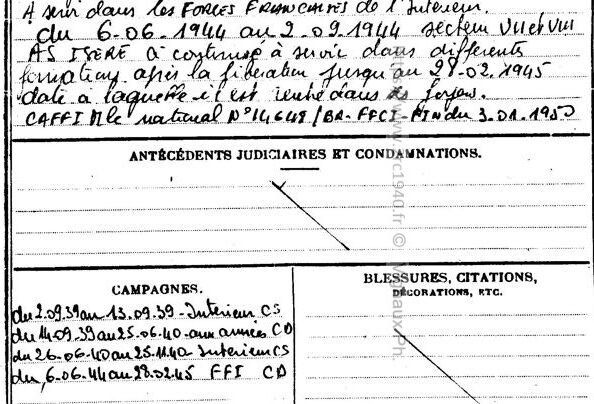 A servi dans les FORCES FRANCAISES de l'Intérieur.
du 6-06-1944 au 2.09.1944 secteur VII et VIII
AS ISERE a continué à servir dans différentes
formations après la libération jusqu'au 28-02.1945
date à laquelle il est rentré dans ses foyers.
CAFFI Mle national N° 14648/BR-FFCI-FIN du 3.01.1950
ANTÉCÉDENTS JUDICIAIRES ET CONDAMNATIONS.
CAMPAGNES.
du 2.09.39 au 13.09.39-Intérieur CS
du 14.09.39 au 25-06-40-aux armées CD
du 26-06-40 au 25.11.40-Intérieur CS
du 6-06-44 au 28.02.45 FFI CD
BLESSURES, CITATIONS,
DÉCORATIONS, ETC.
www.rc1940.fr ©